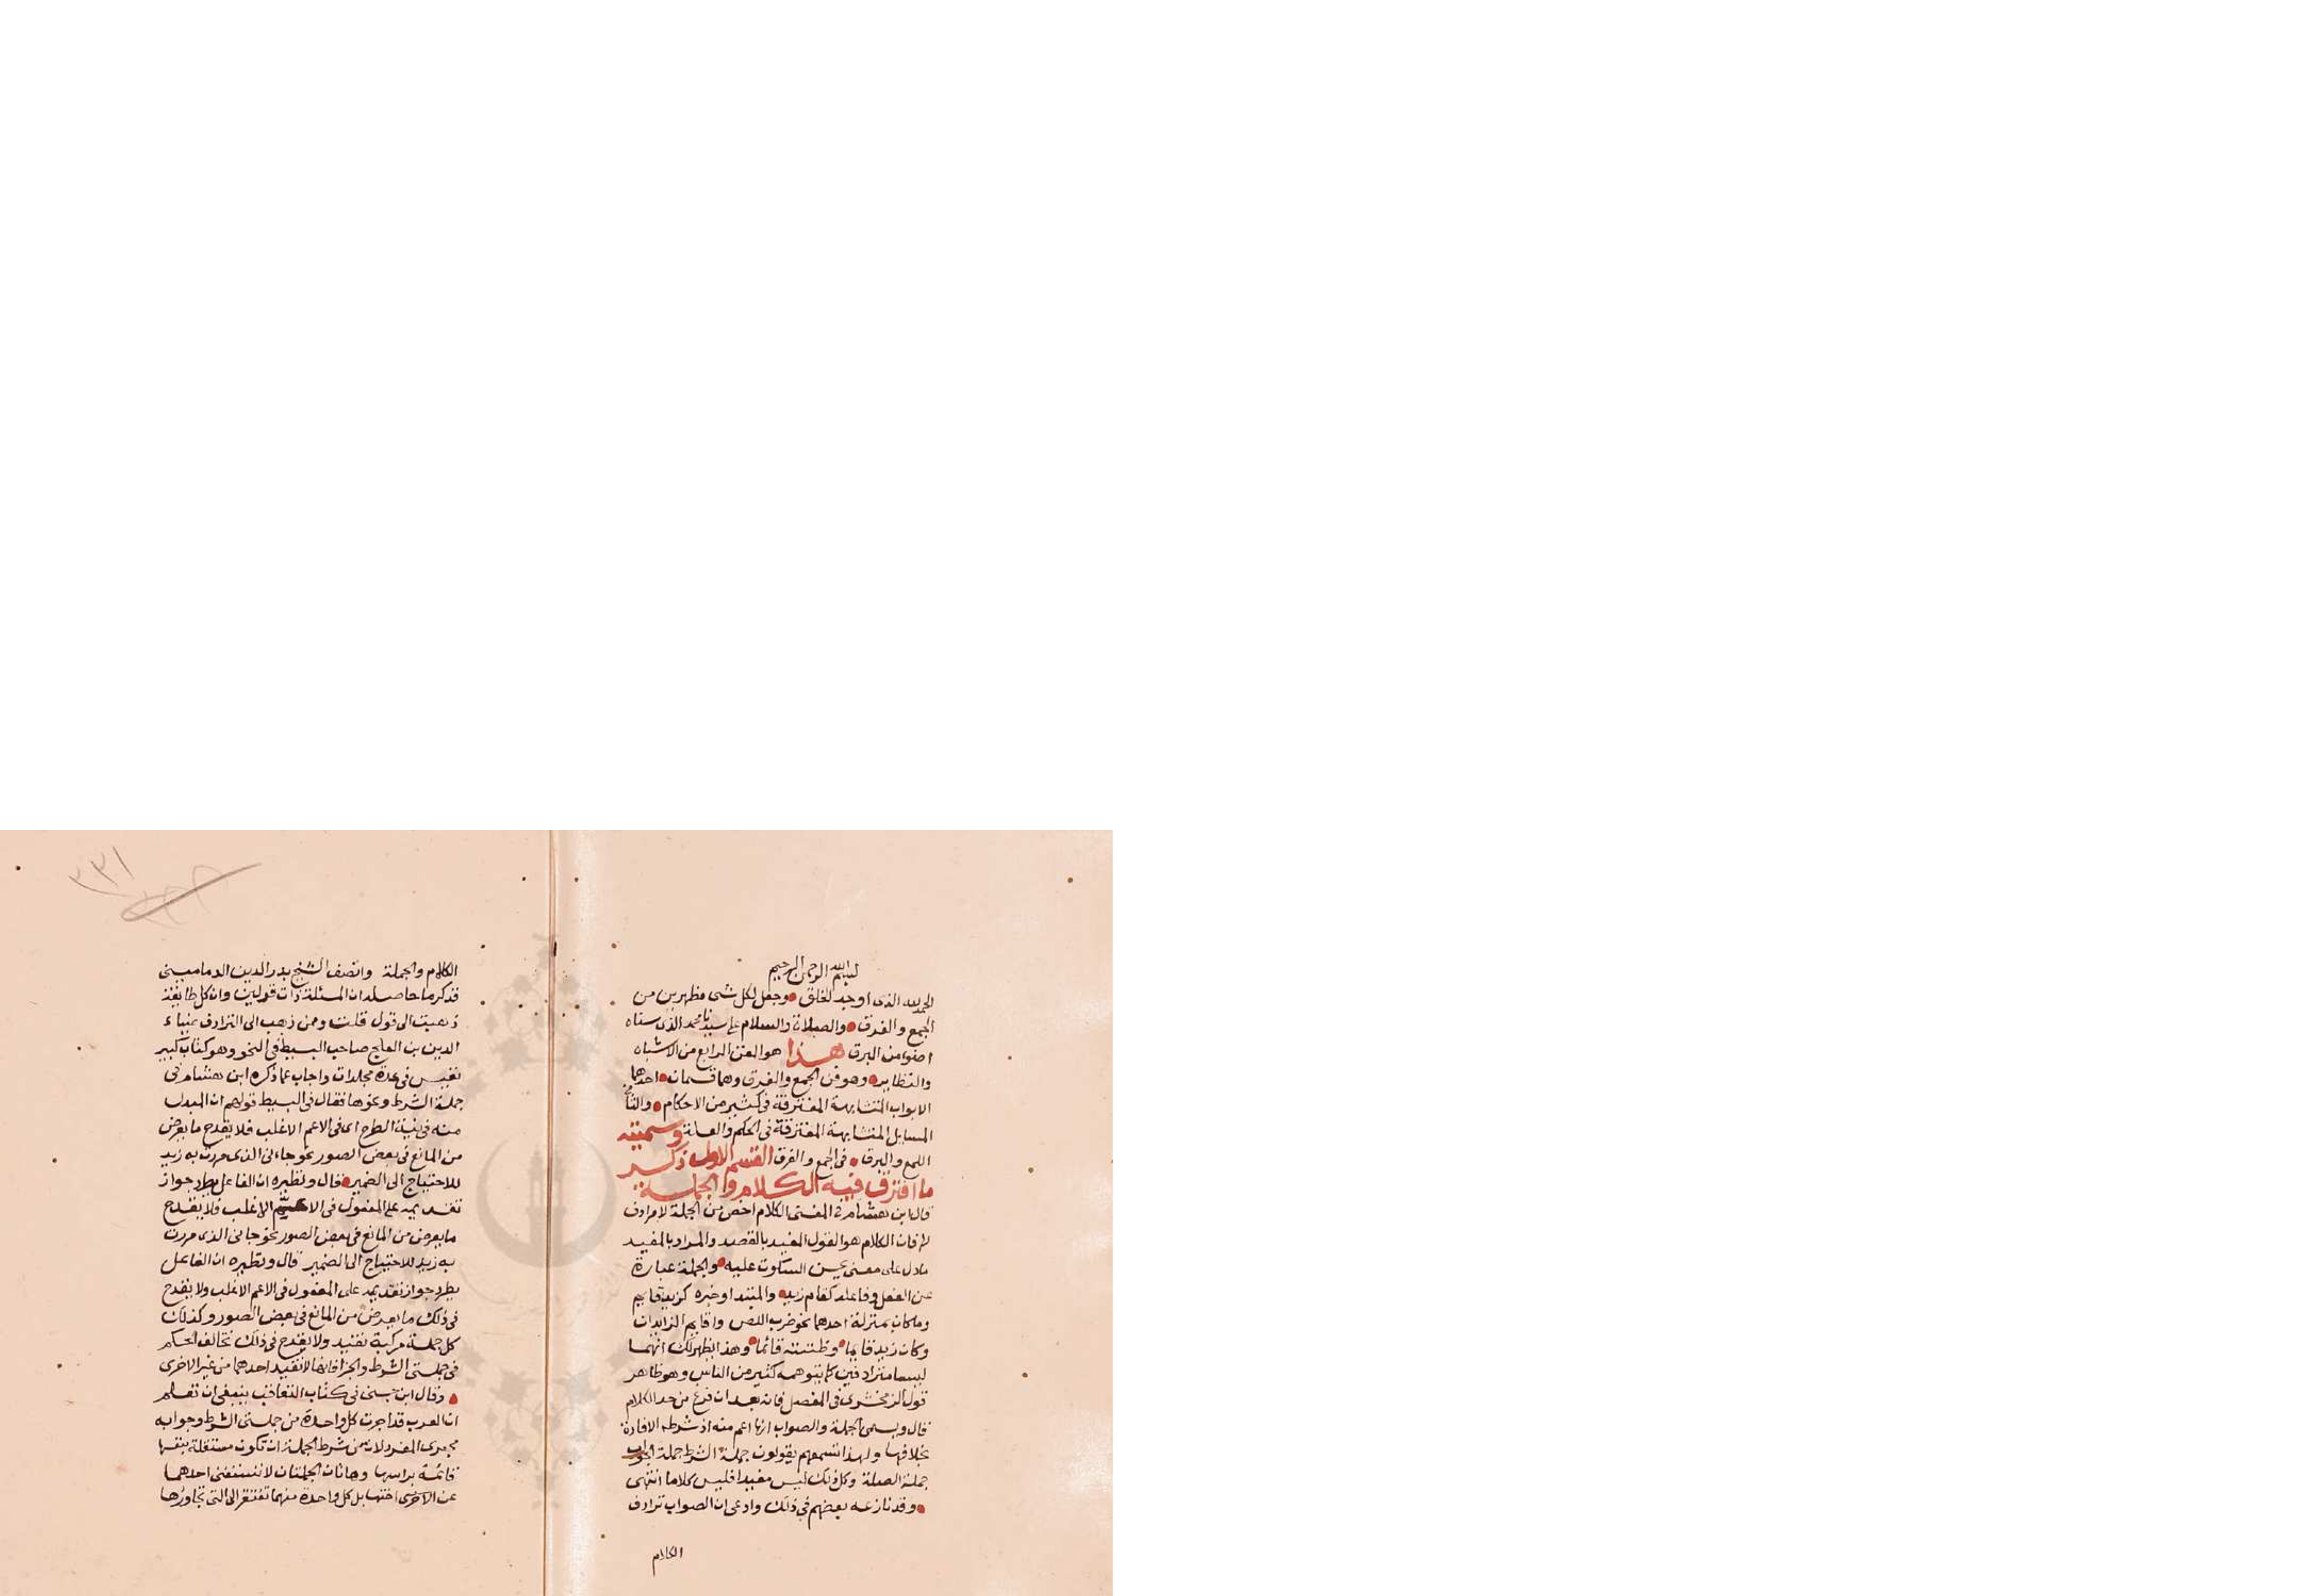 بسم الله الرحمن الرحيم
الحمد لله الذي اوجد الخلق وجعل لكل شي مظهرين من
الجمع والفرق والصلاة والسلام على سيدنا محمد الذي سناه
اضوا من البرق هذا هو الفن الرابع من الاشباه
والنظاير وهو فن الجمع والفرق وهما قسمان احدهما
الابواب المتشابهة المفترقة في كثير من الاحكام والثاني
المسايل المتشابهة المفترقة في الحكم والعلة وسميته
اللمع والبرق في الجمع والفرق القسم الاول ذكر
ما افترق فيه الكلام والجملة
قال ابن هشام في المغني الكلام اخص من الجملة لا مرادف
لها فان الكلام هو القول المفيد بالقصد والمراد بالمفيد
ما دل على معنى يحسن السكوت عليه والجملة عبارة
عن الفعل وفاعله كقام زيد والمبتدا وخبره كزيد قايم
وما كان بمنزلة احدهما نحو ضرب اللص واقايم الزايدان
وكان زيد قايما وظننته قائما وهذا يظهر لك انهما
ليسا مترادفين كما يتوهمه كثير من الناس وهو ظاهر
قول الزمخشري في المفصل فانه بعد ان فرغ من حد الكلام
قال ويسمى الجملة والصواب انها اعم منه اذ شرطه الافادة
بخلافها ولهذا تسمعهم يقولون جملة الشرط جملة الجواب
جملة الصلة وكل ذلك ليس مفيدا فليس كلاما انتهى
وقد نازعه بعضهم في ذلك وادعى ان الصواب ترادف
الكلام
٢٣١
الكلام والجملة وانصف الشيخ بدر الدين الدماميني
فذكر ما حاصله ان المسئلة ذات قولين وان كل طايفة
ذهبت الى قول قلت وممن ذهب الى الترادف ضياء
الدين بن العلج صاحب البسيط في النحو وهو كتاب كبير
نفيس في عدة مجلدات واجاب عما ذكره ابن هشام في
جملة الشرط ونحوها فقال في البسيط قولهم ان المبدل
منه في نية الطرح اى في الاعم الاغلب فلا يقدح ما يعرض
من المانع في بعض الصور نحو جاءني الذي مررت به زيد
للاحتياج الى الضمير قال ونظيره ان الفاعل يطرد جواز
تقديمه على المفعول في الاعم الاغلب فلا يقدح
ما يعرض من المانع في بعض الصور نحو جاني الذي مررت
به زيد للاحتياج الى الضمير قال ونظيره ان الفاعل
يطرد جواز تقديمه على المفعول في الاعم الاغلب ولا يقدح
في ذلك ما يعرض من المانع في بعض الصور وكذلك
كل جملة مركبة تفيد ولا يقدح في ذلك تخالف الحكم
في جملتي الشرط والجزا فانها لا تفيد احدهما من غير الاخرى
وقال ابن جني في كتاب التعاقب ينبغي ان تعلم
ان العرب قد اجرت كل واحدة من جملتي الشرط وجوابه
مجرى المفرد لان من شرط الجملة ان تكون مستقلة بنفسها
قائمة براسها وهاتان الجملتان لا تستغني احدهما
عن الاخرى اختها بل كل واحدة منهما تفتقر الى التي تجاورها